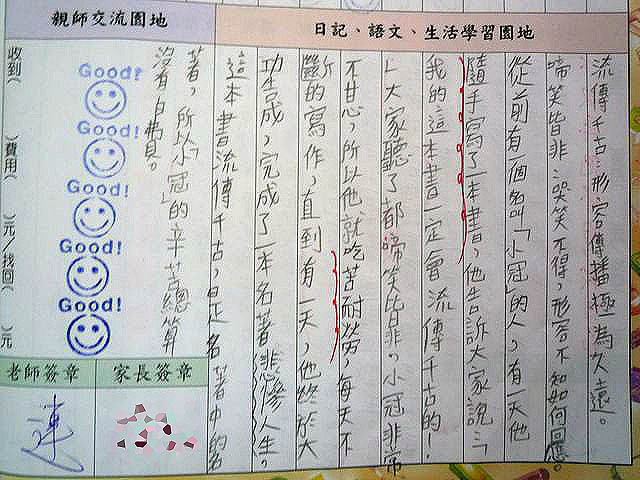 日記、語文、生活學習園地
流傳千古:形容傳播極為久遠。
啼笑皆非:哭笑不得,形容不知如何回應。
從前有一個名叫「小冠」的人,有一天他
隨手寫了一本書,他告訴大家說:「
我的這本書一定會流傳千古的!
」大家聽了都啼笑皆非。小冠非常
不甘心,所以他就吃苦耐勞,每天不
斷的寫作,直到有一天,他終於大
功告成,完成了一本名著《悲慘人生》。
這本書流傳千古,是名著中的名
著,所以「小冠」的辛苦總算
沒有白費。
親師交流園地
Good!
Good!
Good!
Good!
Good!
收到( )費用( )元/找回( )元
老師簽章
家長簽章
連